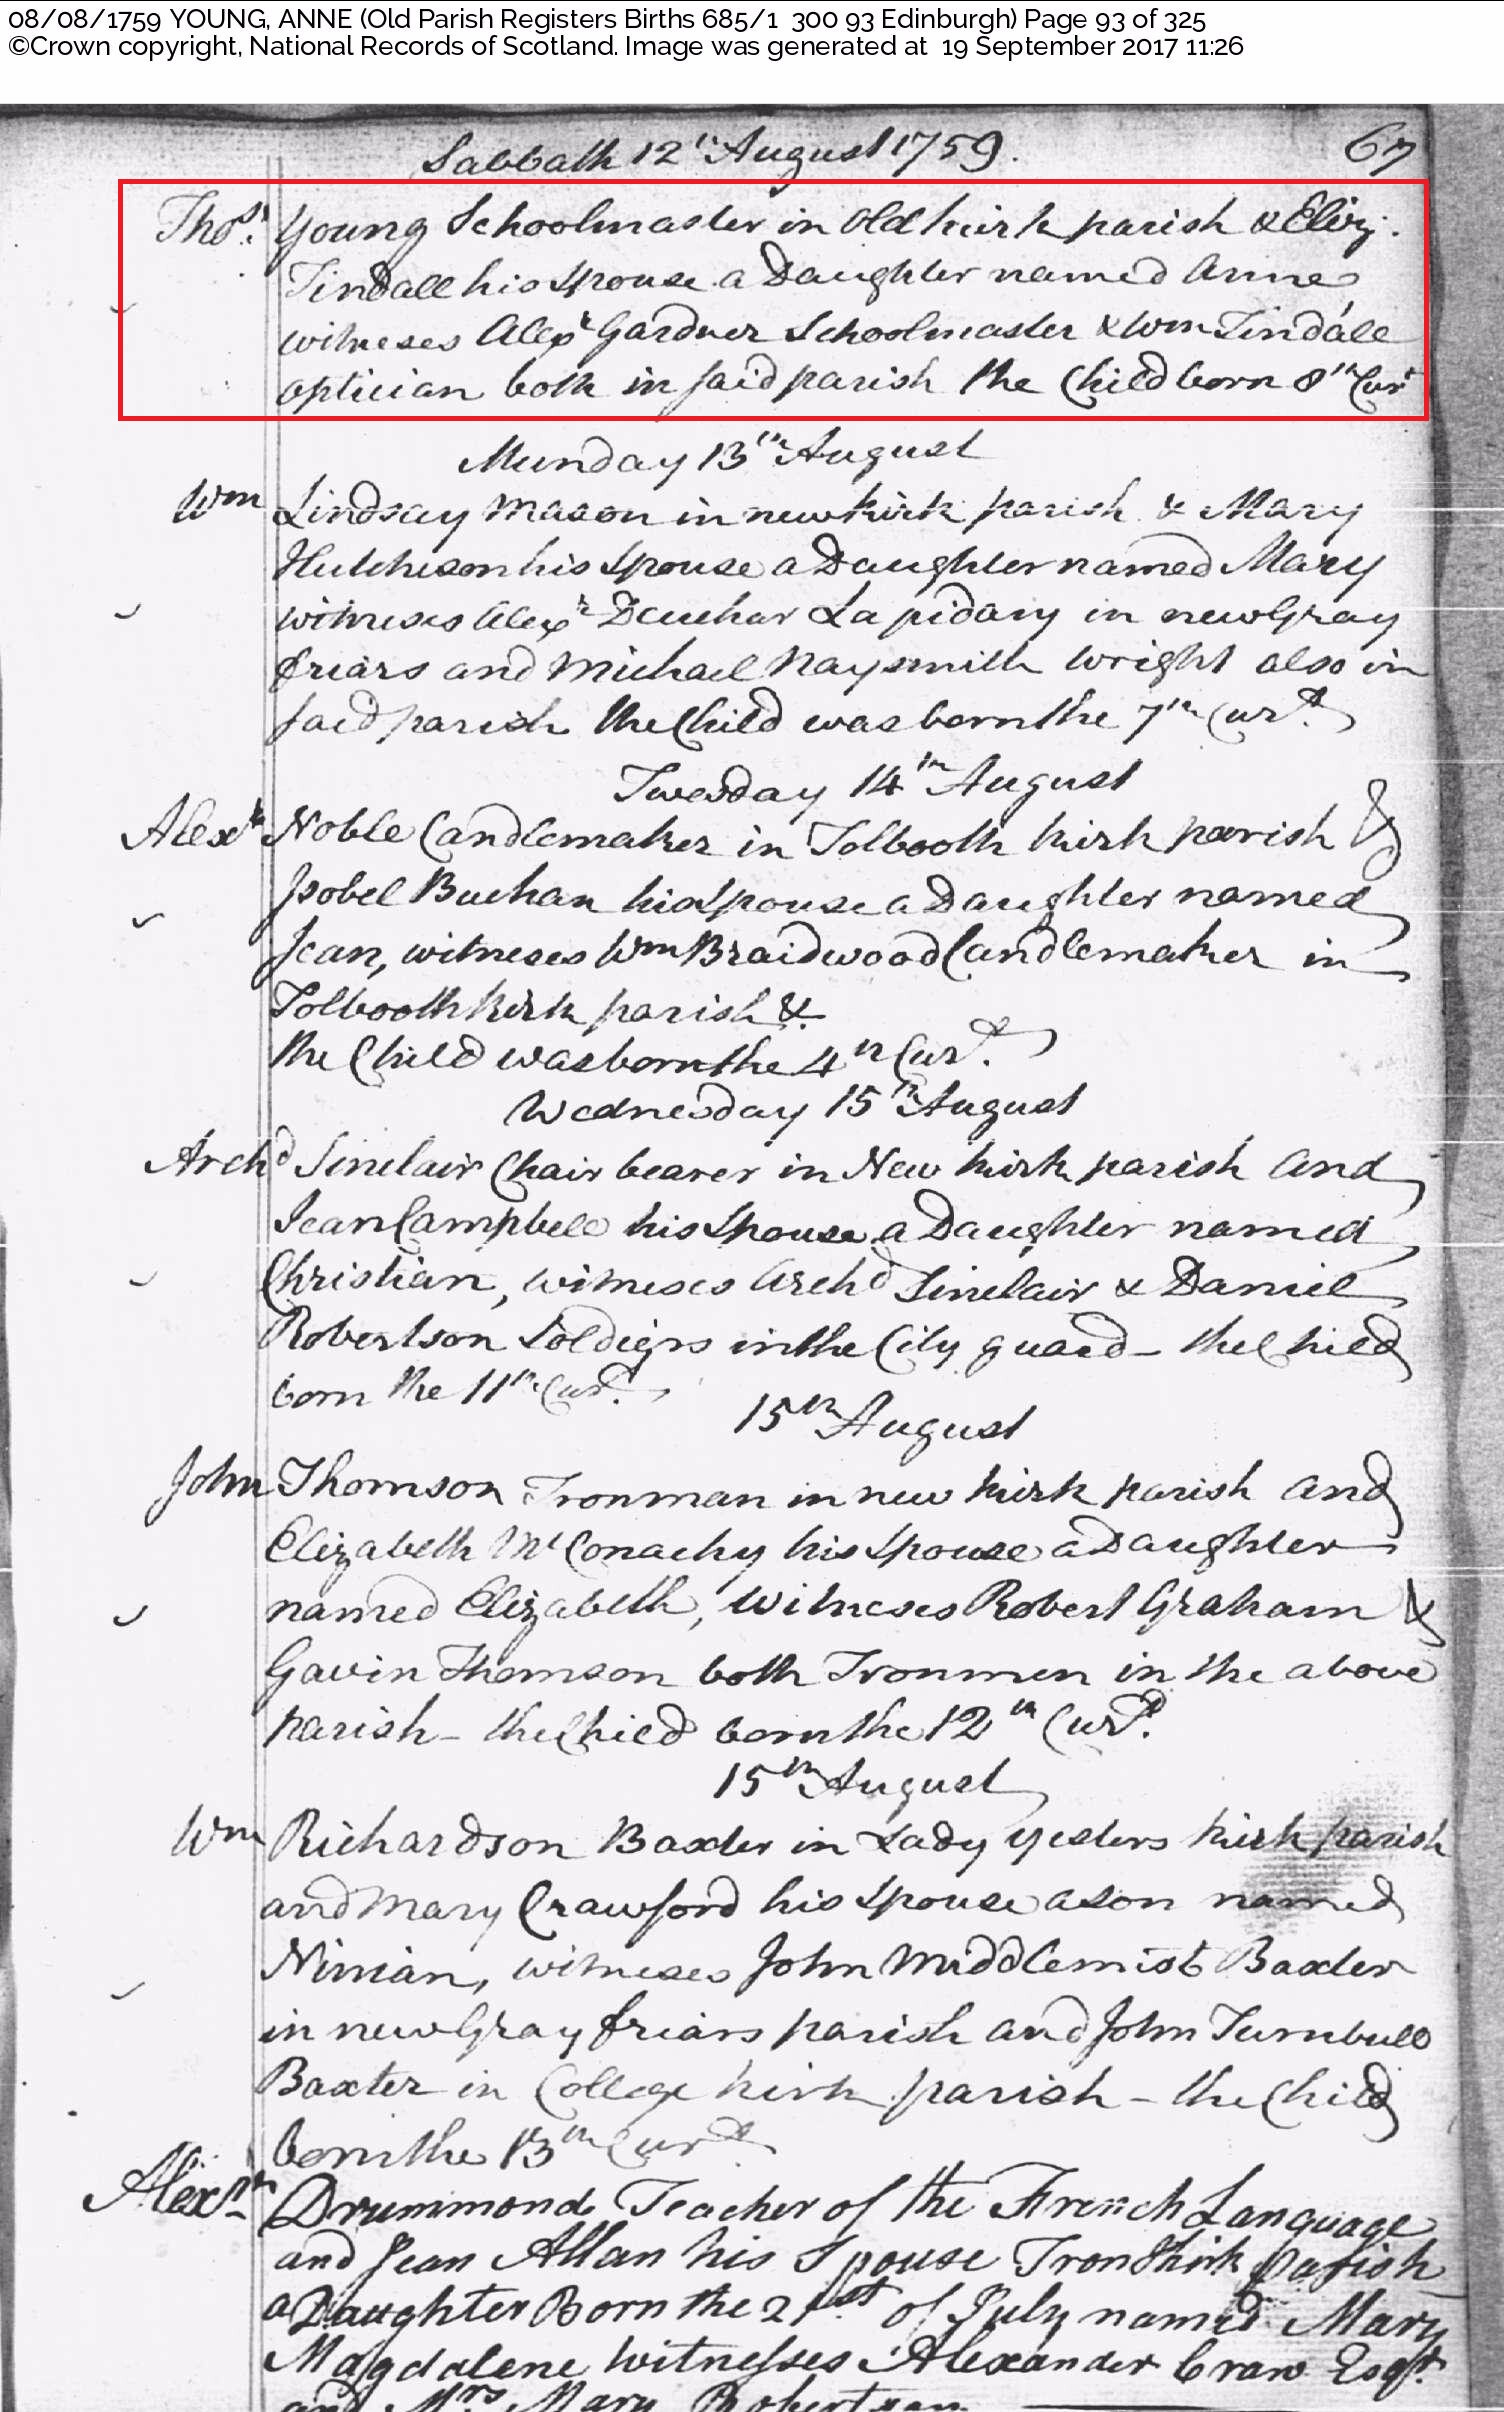 08/08/1759 YOUNG, ANNE (Old Parish Registers Births 685/1 300 93 Edinburgh) Page 93 of 325
©Crown copyright, National Records of Scotland. Image was generated at 19 September 2017 11:26
Sabbath 12th August 1759. 67
Thos. Young Schoolmaster in Old kirk parish & Eliz:
Tindall his Spouse a Daughter named Anne
witneses Alexr Gardner Schoolmaster & Wm Tindall
optician both in said parish the Child born 8th Curt
Munday 13th August
Wm Lindsay Mason in new kirk parish & Mary
Hutcheson his Spouse a Daughter named Mary
witneses Alexr Deuchar Lapidary in new Gray
friars and Michael Naysmith wright also in
said parish the Child was born the 7th Curt.
Twesday 14th August
Alexr Noble Candlemaker in Tolbooth kirk parish &
Isobel Buchan his Spouse a Daughter named
Jean, witneses Wm Braidwood Candlemaker in
Tolbooth kirk parish &
the Child was born the 4th Curt.
Wednesday 15th August
Archd Sinclair Chair bearer in New kirk parish and
Jean Campbell his Spouse a Daughter named
Christian, witneses Archd Sinclair & Daniel
Robertson Soldiers in the City guard - the Child
born the 11th Curt.
15th August
John Thomson Tronman in new kirk parish and
Elizabeth McConachy his Spouse a Daughter
named Elizabeth, witneses Robert Graham &
Gavin Thomson both Tronmen in the above
parish - the Child born the 12th Curt.
15th August
Wm Richardson Baxter in Lady Yesters kirk parish
and Mary Crawford his Spouse a Son named
Ninian, witneses John Middlemist Baxter
in new Gray friars parish and John Turnbull
Baxter in College kirk parish - the Child
born the 13th Curt
Alexr Drummond Teacher of the French Language
and Jean Allan his Spouse Tron Kirk Parish
a Daughter Born the 21st of July named Mary
Magdalene Witnesses Alexander Craw Esqr.
and Mrs Mary Robertson